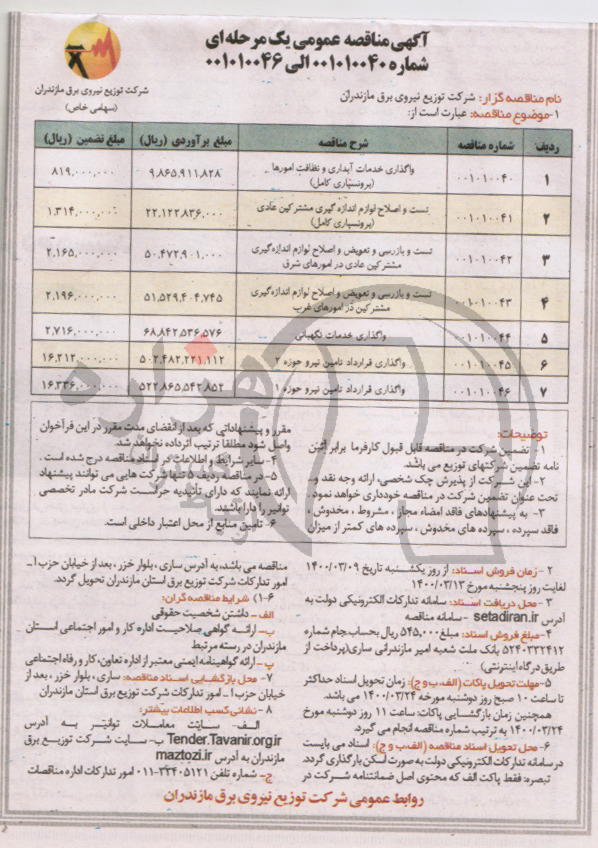 آگهی مناقصه عمومی یک مرحله‌ای
شماره ۰۰۱۰۱۰۰۴۰ الی ۰۰۱۰۱۰۰۴۶
شرکت توزیع نیروی برق مازندران
(سهامی خاص)
نام مناقصه گزار: شرکت توزیع نیروی برق مازندران
۱-موضوع مناقصه: عبارت است از:
ردیف شماره مناقصه شرح مناقصه مبلغ برآوردی (ریال) مبلغ تضمین (ریال)
۱ ۰۰۱۰۱۰۰۴۰ واگذاری خدمات آبداری و نظافت امورها (برونسپاری کامل) ۹.۸۶۵.۹۱۱.۸۲۸ ۸۱۹.۰۰۰.۰۰۰
۲ ۰۰۱۰۱۰۰۴۱ تست و اصلاح لوازم اندازه گیری مشترکین عادی (برونسپاری کامل) ۲۲.۱۲۲.۸۳۶.۰۰۰ ۱.۳۱۴.۰۰۰.۰۰۰
۳ ۰۰۱۰۱۰۰۴۲ تست و بازرسی و تعویض و اصلاح لوازم اندازه‌گیری مشترکین عادی در امورهای شرق ۵۰.۴۷۲.۹۰۱.۰۰۰ ۲.۱۶۵.۰۰۰.۰۰۰
۴ ۰۰۱۰۱۰۰۴۳ تست و بازرسی و تعویض و اصلاح لوازم اندازه‌گیری مشترکین در امورهای غرب ۵۱.۵۲۹.۴۰۴.۷۴۵ ۲.۱۹۶.۰۰۰.۰۰۰
۵ ۰۰۱۰۱۰۰۴۴ واگذاری خدمات نگهبانی ۶۸.۸۴۲.۵۳۶.۵۷۶ ۲.۷۱۶.۰۰۰.۰۰۰
۶ ۰۰۱۰۱۰۰۴۵ واگذاری قرارداد تامین نیرو حوزه ۲ ۵۰۲.۴۸۲.۲۲۱.۱۱۲ ۱۶.۲۱۲.۰۰۰.۰۰۰
۷ ۰۰۱۰۱۰۰۴۶ واگذاری قرارداد تامین نیرو حوزه ۱ ۵۲۲.۸۶۵.۵۴۲.۸۵۲ ۱۶.۳۳۶.۰۰۰.۰۰۰
توضیحات:
۱- تضمین شرکت در مناقصه قابل قبول کارفرما برابر آئین
نامه تضمین شرکتهای توزیع می باشد.
۲- این شرکت از پذیرش چک شخصی، ارائه وجه نقد و...
تحت عنوان تضمین شرکت در مناقصه خودداری خواهد نمود.
۳- به پیشنهادهای فاقد امضاء مجاز، مشروط، مخدوش،
فاقد سپرده، سپرده های مخدوش، سپرده های کمتر از میزان
مقرر و پیشنهاداتی که بعد از انقضای مدت مقرر در این فرآخوان
واصل شود مطلقا ترتیب اثر داده نخواهد شد.
۴- سایر شرایط و اطلاعات در اسناد مناقصه درج شده است.
۵- در مناقصه ردیف ۵ تنها شرکت هایی می توانند پیشنهاد
ارائه نمایند که دارای تأئیدیه حراست شرکت مادر تخصصی
توانیر را دارا باشند.
۶- تامین منابع از محل اعتبار داخلی است.
۲- زمان فروش اسناد: از روز یکشنبه تاریخ ۱۴۰۰/۰۳/۰۹
لغایت روز پنجشنبه مورخ ۱۴۰۰/۰۳/۱۳
۳- محل دریافت اسناد: سامانه تدارکات الکترونیکی دولت به
آدرس setadiran.ir - سامانه مناقصه
۴-مبلغ فروش اسناد: مبلغ ۵۴۵,۰۰۰ ریال بحساب جام شماره
۵۲۴۰۳۳۲۴۱۲ بانک ملت شعبه امیر مازندرانی ساری(پرداخت از
طریق درگاه اینترنتی)
۵-مهلت تحویل پاکات (الف، ب و ج): زمان تحویل اسناد حداکثر
تا ساعت ۱۰ صبح روز دوشنبه مورخه ۱۴۰۰/۰۳/۲۴ می باشد.
همچنین زمان بازگشایی پاکات: ساعت ۱۱ روز دوشنبه مورخ
۱۴۰۰/۰۳/۲۴ به ترتیب شماره مناقصه انجام می گیرد.
۶- محل تحویل اسناد مناقصه (الف، ب و ج): اسناد می بایست
در سامانه تدارکات الکترونیکی دولت به صورت اسکن بارگذاری گردد.
تبصره: فقط پاکت الف که محتوی اصل ضمانتنامه شرکت در
مناقصه می باشد، به آدرس ساری، بلوار خزر، بعد از خیابان حزب ۱-
امور تدارکات شرکت توزیع برق استان مازندران تحویل گردد.
۶-۱) شرایط مناقصه گران:
الف- داشتن شخصیت حقوقی
ب- ارائه گواهی صلاحیت اداره کار و امور اجتماعی استان
مازندران در رسته مرتبط
پ- ارائه گواهینامه ایمنی معتبر از اداره تعاون، کار و رفاه اجتماعی
۷- محل بازگشایی اسناد مناقصه: ساری، بلوار خزر، بعد از
خیابان حزب ۱- امور تدارکات شرکت توزیع نیروی برق استان مازندران
۸- نشانی کسب اطلاعات بیشتر:
الف- سایت معاملات توانیر به آدرس
Tender.Tavanir.org.ir ب- سایت شرکت توزیع برق
مازندران به آدرس maztozi.ir
ج- شماره تلفن ۳۳۴۰۵۱۲۱-۰۱۱ امور تدارکات اداره مناقصات
روابط عمومی شرکت توزیع نیروی برق مازندران
هزاره